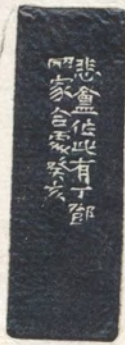 悲盦作此有丁鄧
兩家合處癸亥